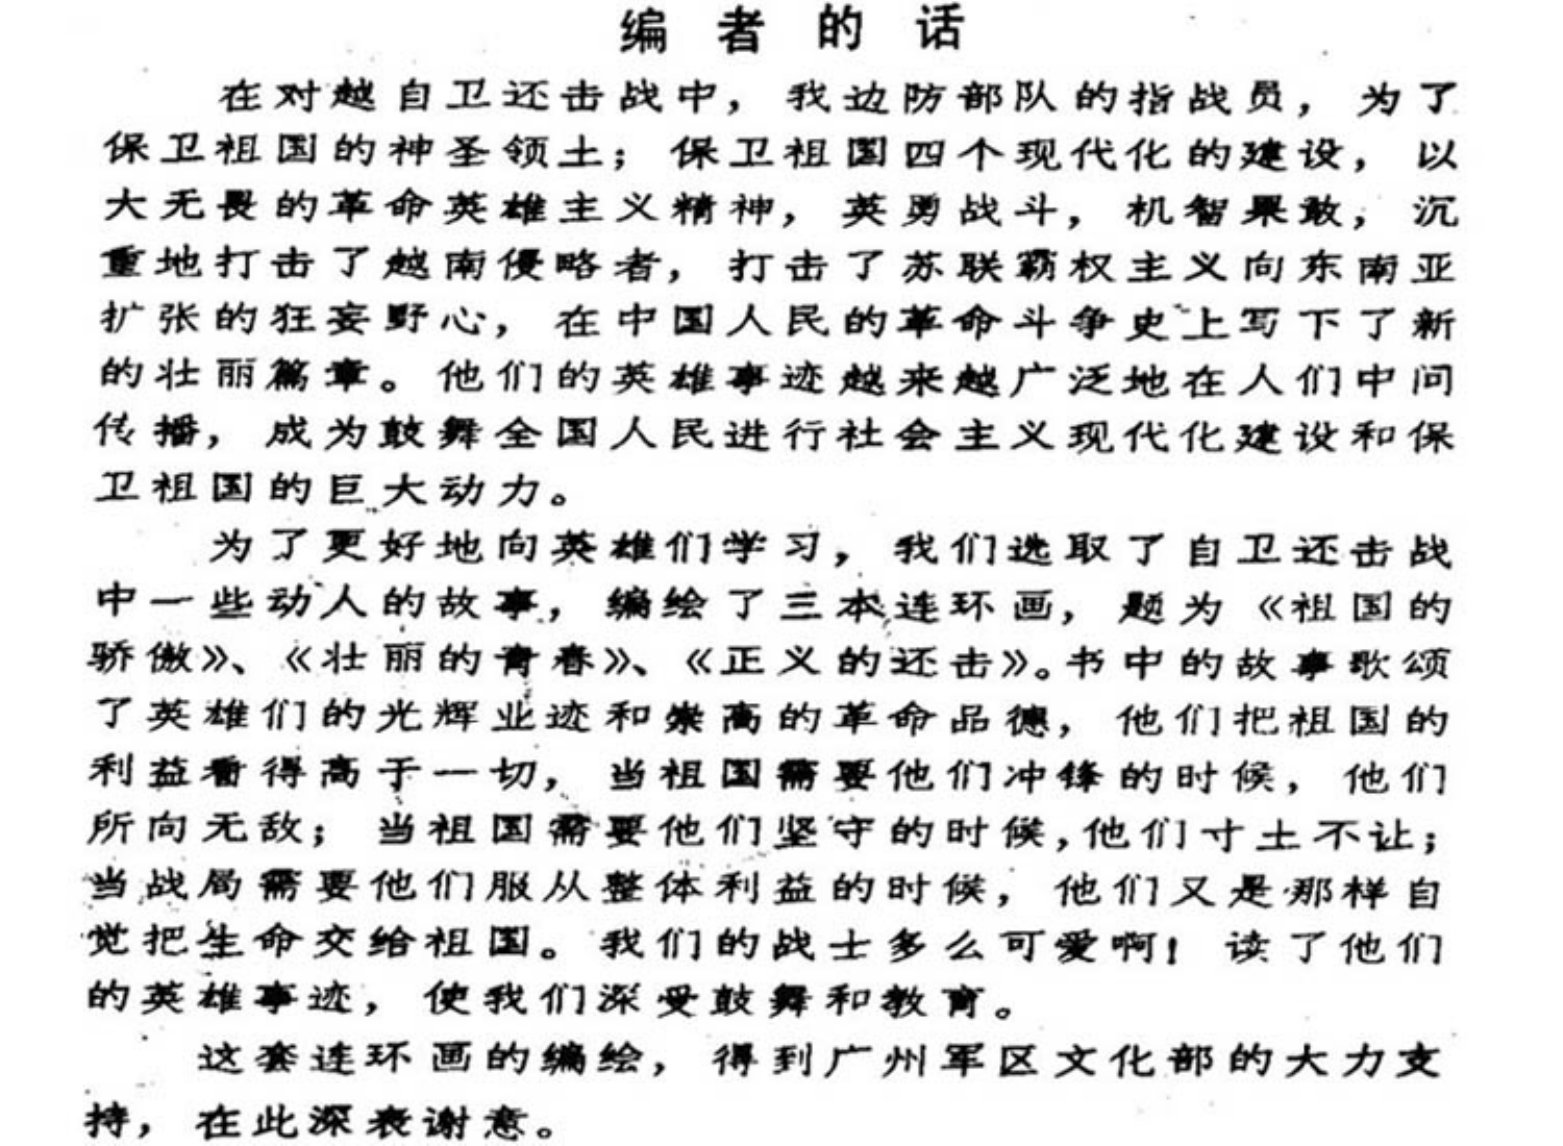 编者的话
在对越自卫还击战中，我边防部队的指战员，为了
保卫祖国的神圣领土；保卫祖国四个现代化的建设，以
大无畏的革命英雄主义精神，英勇战斗，机智果敢，沉
重地打击了越南侵略者，打击了苏联霸权主义向东南亚
扩张的狂妄野心，在中国人民的革命斗争史上写下了新
的壮丽篇章。他们的英雄事迹越来越广泛地在人们中间
传播，成为鼓舞全国人民进行社会主义现代化建设和保
卫祖国的巨大动力。
为了更好地向英雄们学习，我们选取了自卫还击战
中一些动人的故事，编绘了三本连环画，题为《祖国的
骄傲》、《壮丽的青春》、《正义的还击》。书中的故事歌颂
了英雄们的光辉业迹和崇高的革命品德，他们把祖国的
利益看得高于一切，当祖国需要他们冲锋的时候，他们
所向无敌；当祖国需要他们坚守的时候，他们寸土不让；
当战局需要他们服从整体利益的时候，他们又是那样自
觉把生命交给祖国。我们的战士多么可爱啊！读了他们
的英雄事迹，使我们深受鼓舞和教育。
这套连环画的编绘，得到广州军区文化部的大力支
持，在此深表谢意。